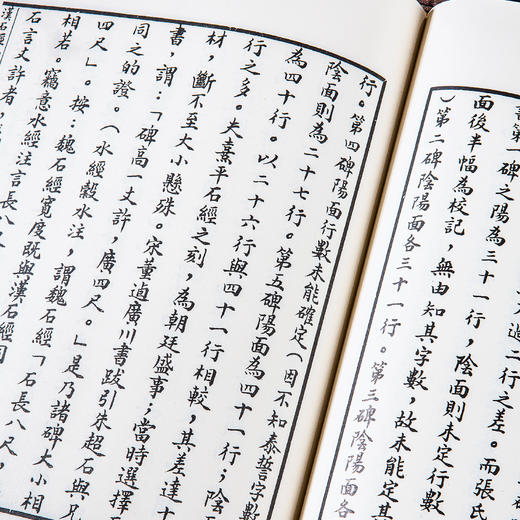 行之差。而張氏
書第一碑之陽為三十一行,陰面則未定行數
面後半幅為校記,無由知其字數,故未能定其
)第二碑陰陽面各三十一行。第三碑陰陽面各
行。第四碑陽面行數未能確定(因不知泰誓字數
陰面則為二十七行。第五碑陽面為四十一行;陰
為四十行。以二十六行與四十一行相較,其差達十
行之多。夫熹平石經之刻,為朝廷盛事;當時選擇
材,斷不至大小懸殊。宋董逌廣川書跋引朱超石與兄
書,謂:「碑高一丈許,廣四尺。」是乃諸碑大小相
同之的證。(水經穀水注,謂魏石經「石長八尺,
四尺」。按:魏石經寬度既與漢石經同
相若。竊意水經注言長八
石言丈許者,
漢石經